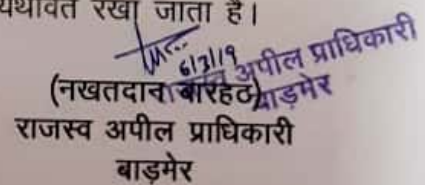 यथावत रखा जाता है।
6/3/19
राजस्व अपील प्राधिकारी
बाड़मेर
(नखतदान बारहठ)
राजस्व अपील प्राधिकारी
बाड़मेर